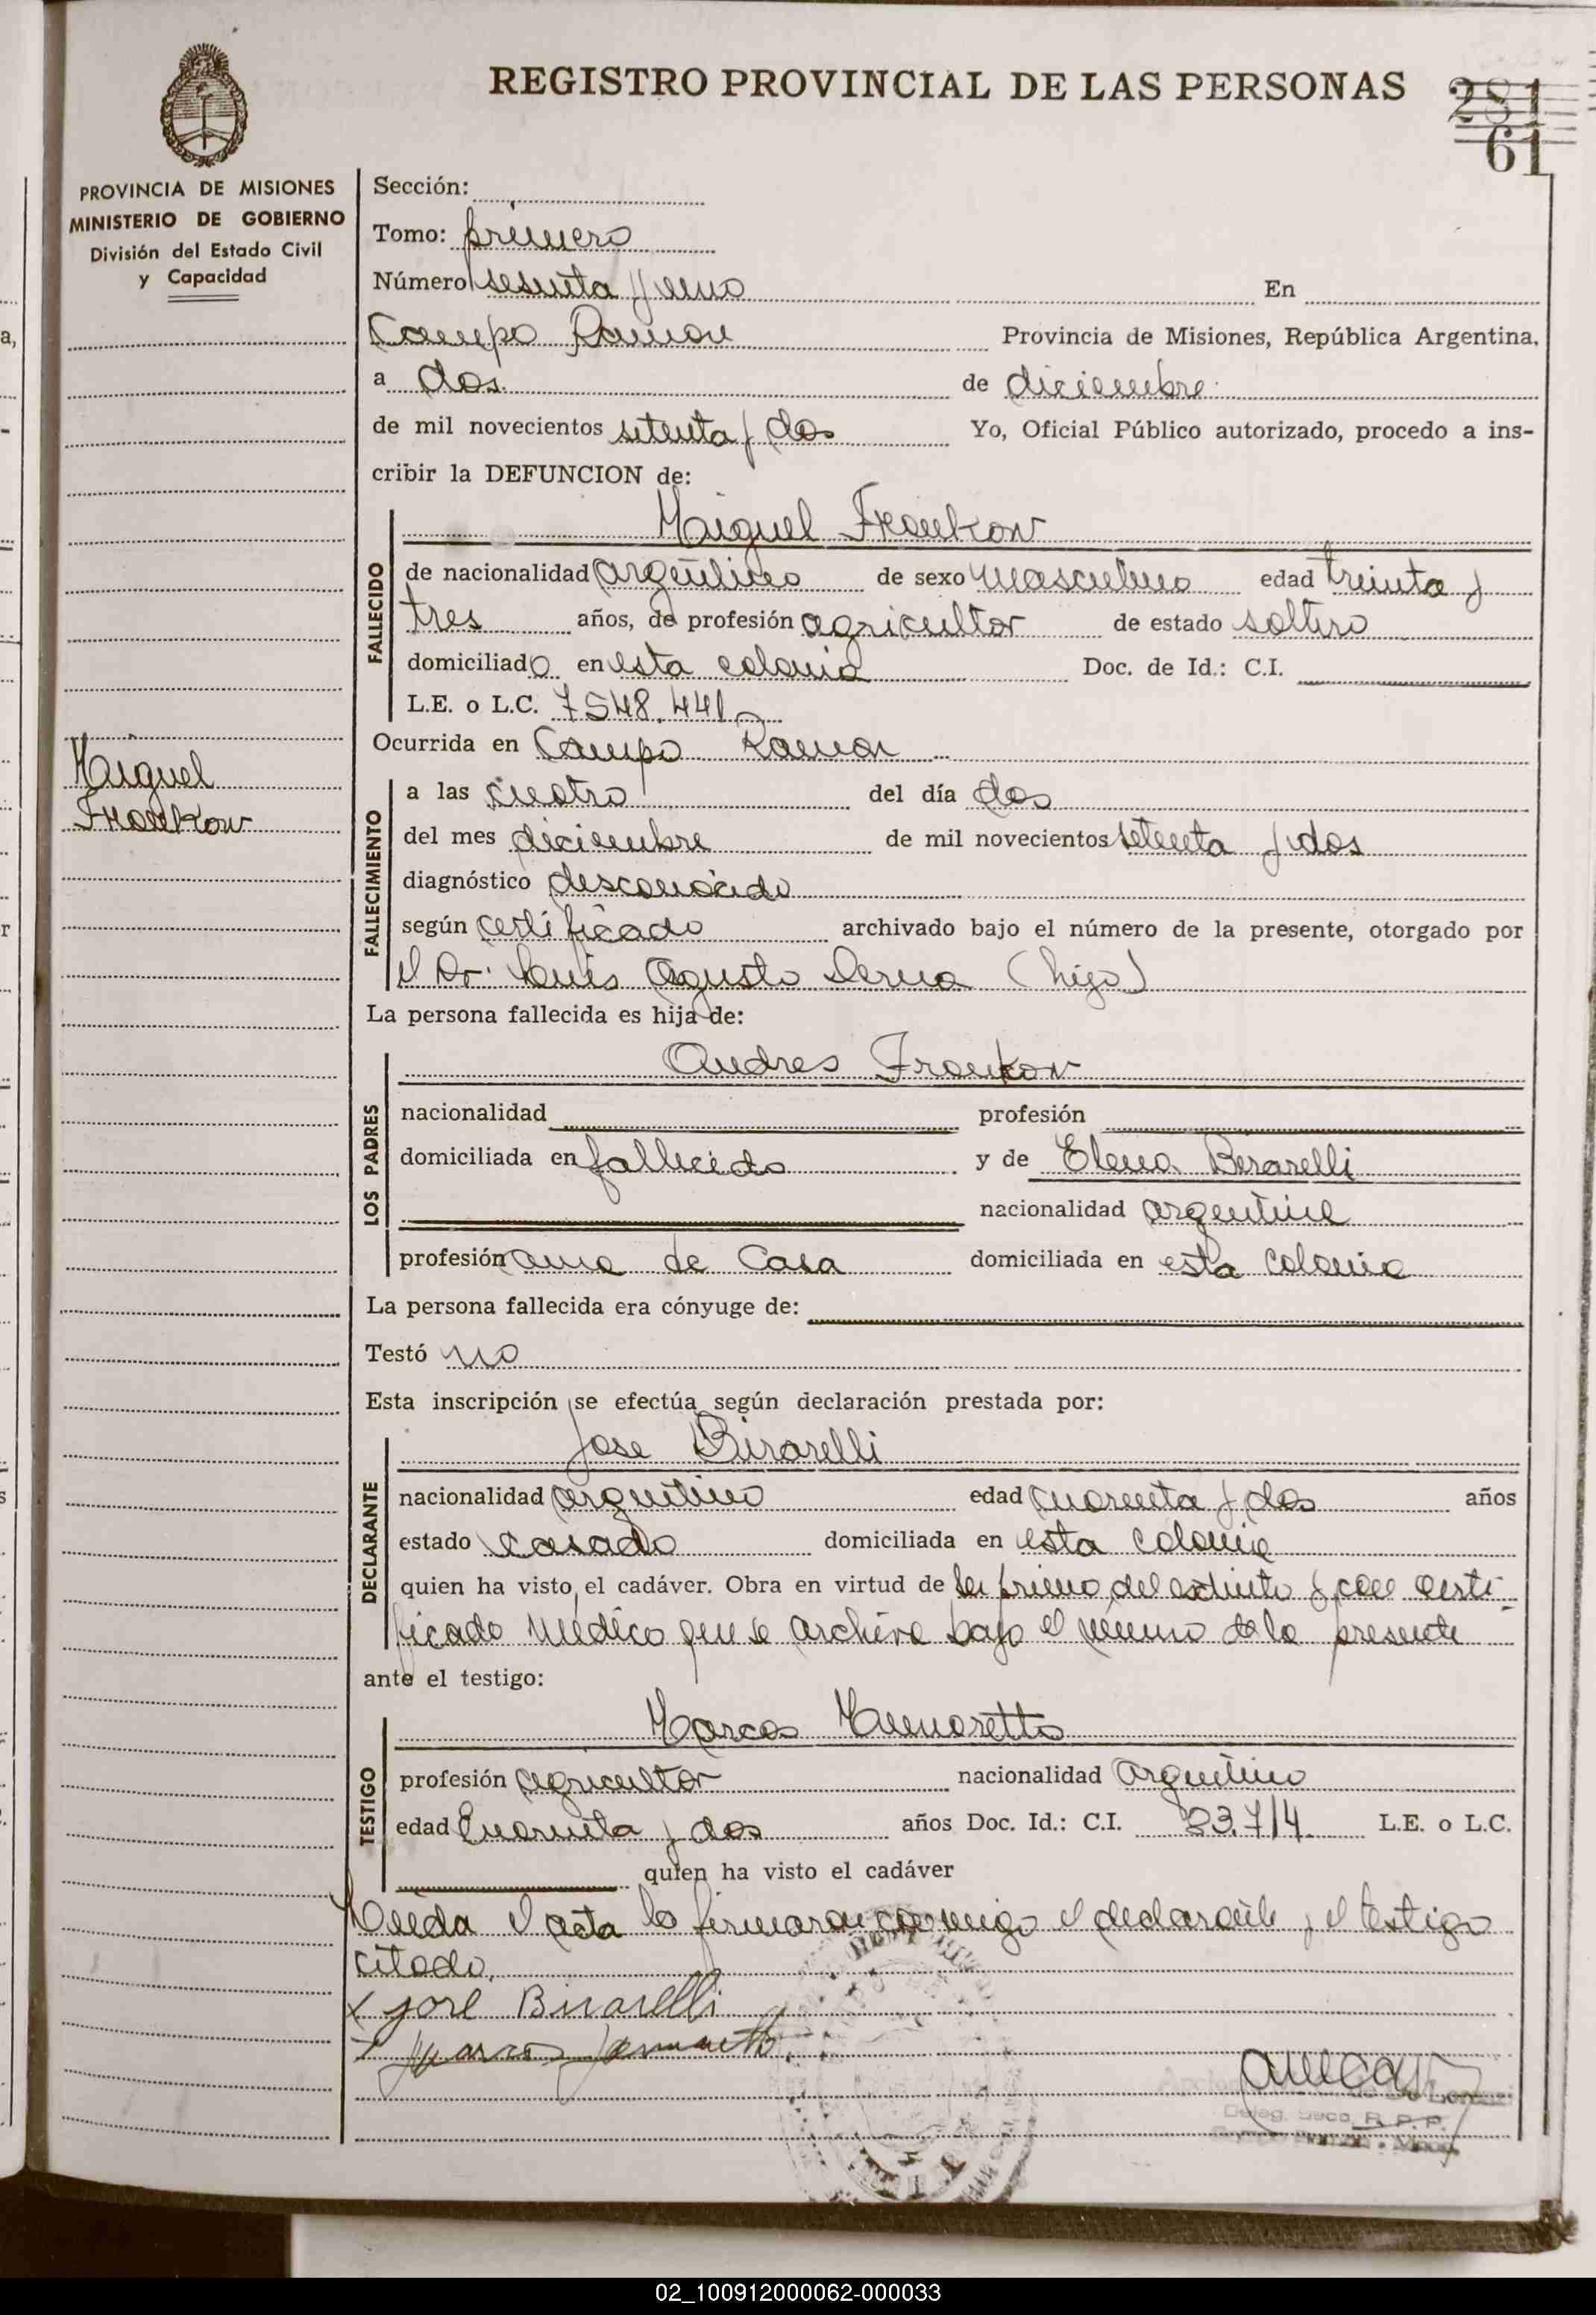 REGISTRO PROVINCIAL DE LAS PERSONAS
281
61
PROVINCIA DE MISIONES
MINISTERIO DE GOBIERNO
División del Estado Civil
y Capacidad
Sección:
Tomo: primero
Número sesenta y uno En
Campo Ramon Provincia de Misiones, República Argentina,
a dos de diciembre
de mil novecientos setenta y dos Yo, Oficial Público autorizado, procedo a ins-
cribir la DEFUNCION de:
Miguel Frankow
FALLECIDO
de nacionalidad argentino de sexo masculino edad treinta y
tres años, de profesión agricultor de estado soltero
domiciliado en esta colonia Doc. de Id.: C.I.
L.E. o L.C. 7548.441
Ocurrida en Campo Ramon
Miguel
Frankow
FALLECIMIENTO
a las cuatro del día dos
del mes diciembre de mil novecientos setenta y dos
diagnóstico desconocido
según certificado archivado bajo el número de la presente, otorgado por
el Dr. Luis Agusto (hijo)
La persona fallecida es hija de:
LOS PADRES
Andres Frankow
nacionalidad profesión
domiciliada en fallecido y de Elena Berarelli
nacionalidad argentina
profesión ama de Casa domiciliada en esta colonia
La persona fallecida era cónyuge de:
Testó no
Esta inscripción se efectúa según declaración prestada por:
DECLARANTE
Jose Birarelli
nacionalidad argentino edad cuarenta y dos años
estado casado domiciliada en esta colonia
quien ha visto el cadáver. Obra en virtud de ser primo del extinto y con certi-
ficado médico que se archiva bajo el número de la presente
ante el testigo:
TESTIGO
Marcos
profesión agricultor nacionalidad argentino
edad cuarenta y dos años Doc. Id.: C.I. 23.714 L.E. o L.C.
quien ha visto el cadáver
Leida el acta la firmaran conmigo el declarante y el testigo
citado.
x jose Birarelli
x
Deleg. Secc. R. P. P.
02_100912000062-000033